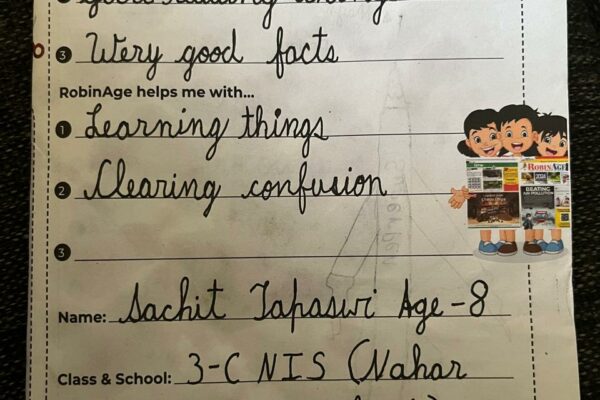 good reading
3 Wery good facts
RobinAge helps me with...
1 Learning things
2 Clearing confusion
ROBINAGE
BEATING AIR POLLUTION
3
Name: Sachit Tapaswi Age - 8
Class & School: 3-C NIS (Nahar